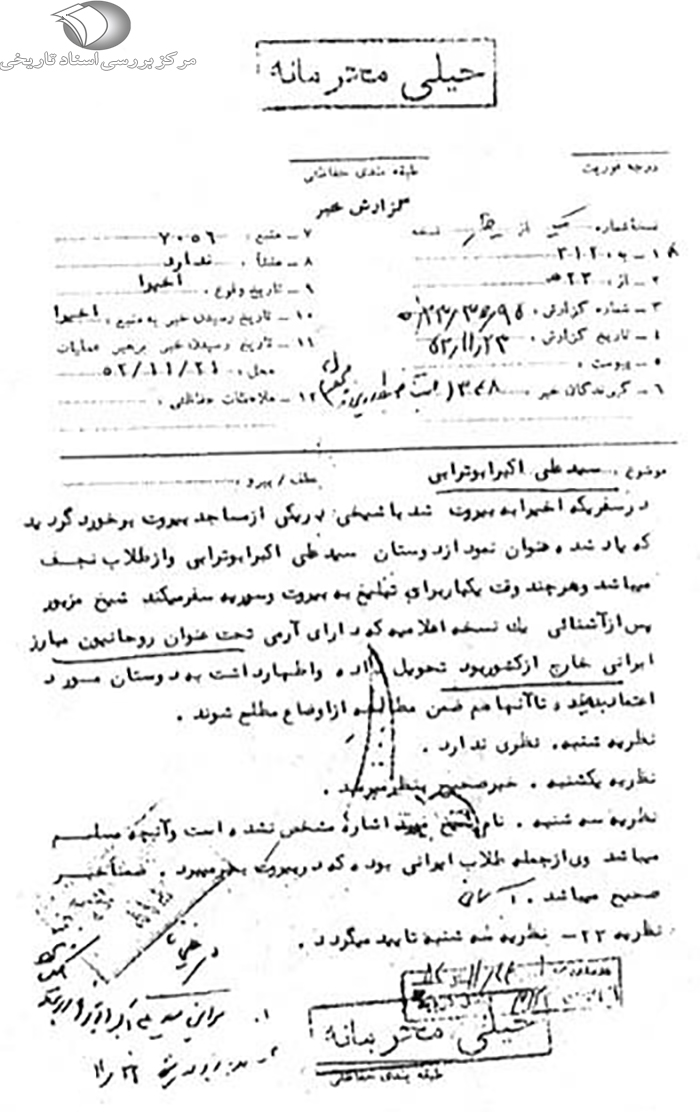 مرکز بررسی اسناد تاریخی
خیلی محرمانه
درجه فوریت
طبقه بندی حفاظتی
گزارش خبر
نسخهٔ شماره از نسخه
۱ ـ به ۳۰۱۰۲۰
۲ ـ از : ۲۳ ه‍
۳ ـ شماره گزارش :
۴ ـ تاریخ گزارش : ۵۲/۱۱/۲۳
۵ ـ پیوست :
۶ ـ گیرندگان خبر
۷ ـ منبع : ۷۰۵۶
۸ ـ منشأ : ندارد
۹ ـ تاریخ وقوع : اخیرا
۱۰ ـ تاریخ رسیدن خبر به منبع : اخیرا
۱۱ ـ تاریخ رسیدن خبر برهبر عملیات
محل : ۵۲/۱۱/۲۱
۱۲ ـ ملاحظات حفاظتی :
موضوع : سیدعلی اکبرابوترابی
عطف / پیرو :
درسفریکه اخیرابه بیروت شد باشیخی دریکی ازمساجد بیروت برخورد گردید
که یاد شده عنوان نمود ازدوستان سیدعلی اکبرابوترابی وازطلاب نجف
میباشد وهرچند وقت یکباربرای تبلیغ به بیروت وسوریه سفرمیکند شیخ مزبور
پس ازآشنائی یک نسخه اعلامیه که دارای آرمی تحت عنوان روحانیون مبارز
ایرانی خارج ازکشوربود تحویل داده واظهارداشت به دوستان مورد
اعتماد بدهید تاآنها هم ضمن مطالعه ازاوضاع مطلع شوند .
نظریه شنبه . نظری ندارد .
نظریه یکشنبه . خبرصحیح بنظرمیرسد .
نظریه سه شنبه . نام شیخ مورد اشاره مشخص نشده است وآنچه مسلم
میباشد وی ازجمله طلاب ایرانی بوده که دربیروت بسرمیبرد . ضمناً خبر
صحیح میباشد .
نظریه ۲۳ـ نظریه سه شنبه تایید میگردد .
خیلی محرمانه
طبقه بندی حفاظتی